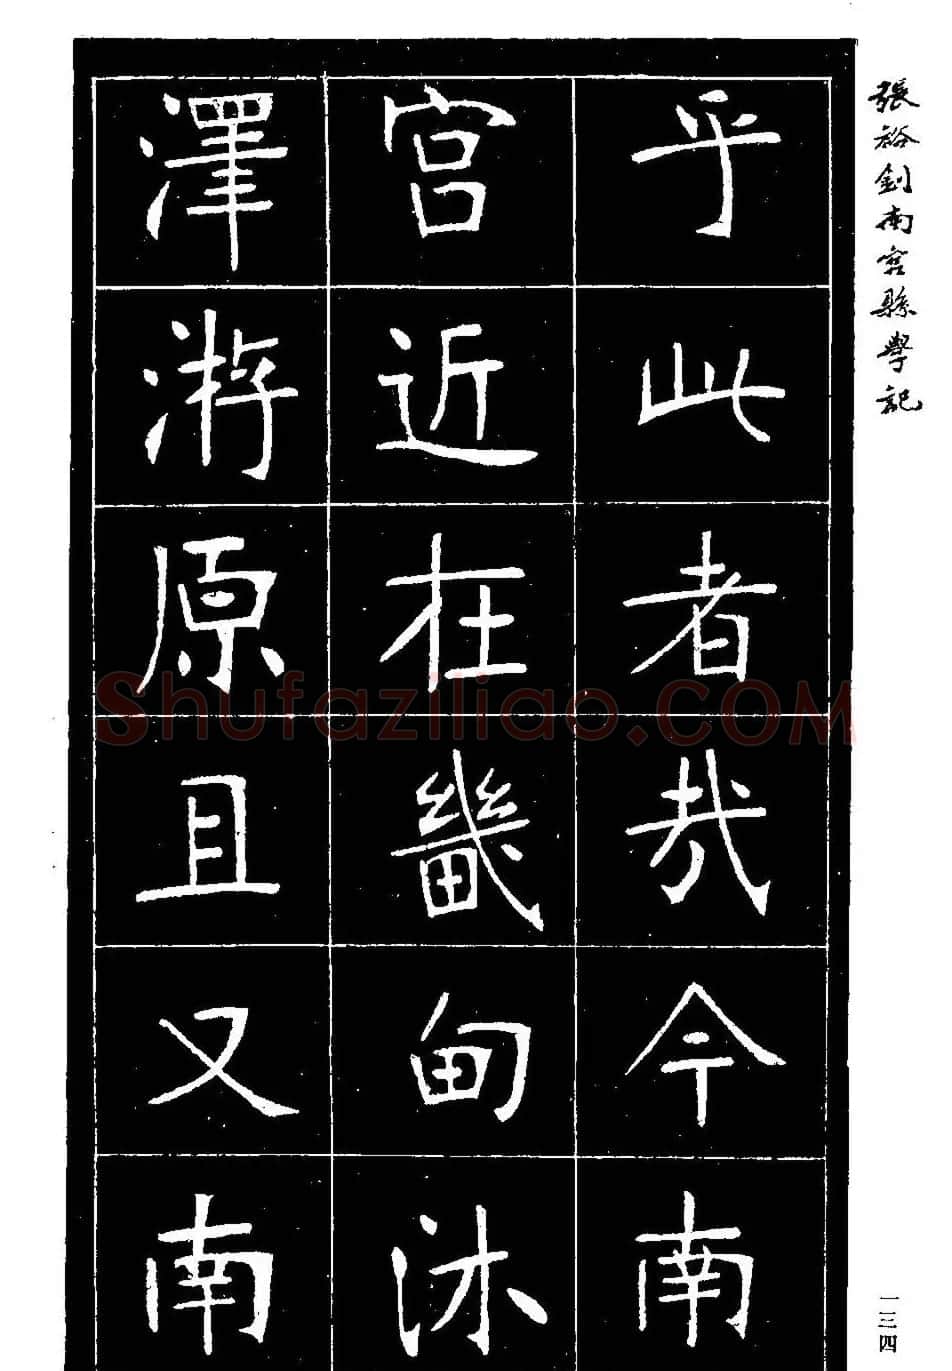 張裕釗南宮縣學記
乎此者哉今南
宮近在畿甸沐
澤游原且又南
一三四
Shufaziliao.COM